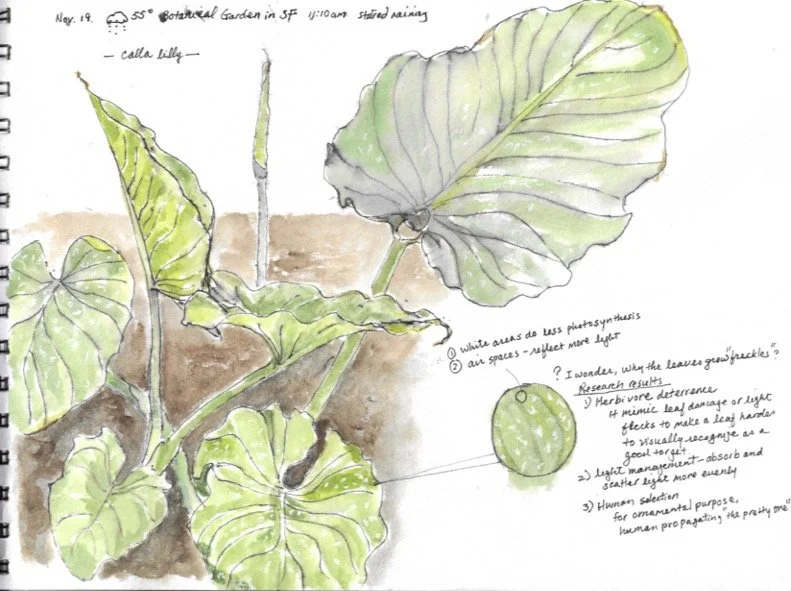 Nov. 19. 55° Botanical Garden in SF 11:10am stared raining
— Calla lilly —
① white areas do less photosynthesis
② air spaces - reflect more light
? I wonder, why the leaves grow "freckles"?
Research results
1) Herbivore deterrence
It mimic leaf damage or light
flecks to make a leaf harder
to visually recognize as a
good target
2) light management - absorb and
scatter light more evenly
3) Human selection
for ornamental purpose,
human propagating "the pretty one"